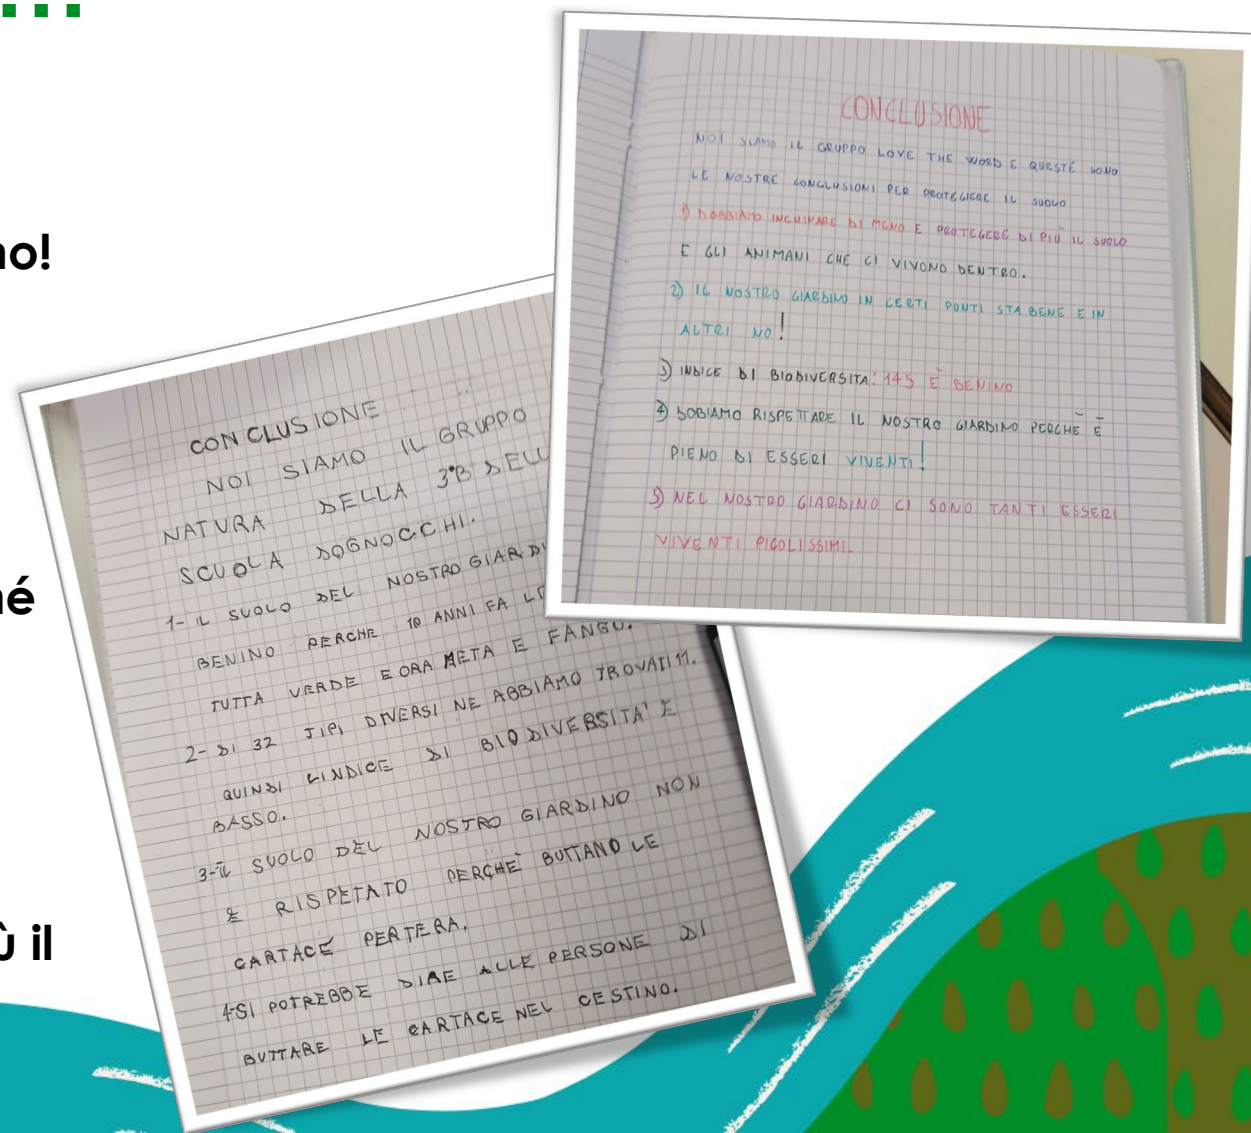 no!
né
ù il
CONCLUSIONE
NOI SIAMO IL GRUPPO
NATURA DELLA 3°B DELL
SCUOLA DOGNOCCHI.
1- IL SUOLO DEL NOSTRO GIARDI
BENINO PERCHE 10 ANNI FA
TUTTA VERDE E ORA META E FANGO.
2- DI 32 TIPI DIVERSI NE ABBIAMO TROVATI 11.
QUINDI LINDICE DI BIODIVERSITA' E
BASSO.
3- IL SUOLO DEL NOSTRO GIARDINO NON
E RISPETATO PERCHE' BUTTANO LE
CARTACE PERTERA.
4-SI POTREBBE DIRE ALLE PERSONE DI
BUTTARE LE CARTACE NEL CESTINO.
CONCLUSIONE
NOI SIAMO IL GRUPPO LOVE THE WORD E QUESTE SONO
LE NOSTRE CONCLUSIONI PER PROTEGIERE IL SUOLO
1) DOBBIAMO INCUINARE DI MENO E PROTEGERE DI PIÙ IL SUOLO
E GLI ANIMANI CHE CI VIVONO DENTRO.
2) IL NOSTRO GIARDINO IN CERTI PUNTI STA BENE E IN
ALTRI NO!
3) INDICE DI BIODIVERSITA: 145 È BENINO
4) DOBIAMO RISPETTARE IL NOSTRO GIARDINO PERCHÈ È
PIENO DI ESSERI VIVENTI!
5) NEL NOSTRO GIARDINO CI SONO TANTI ESSERI
VIVENTI PICOLISSIMI.